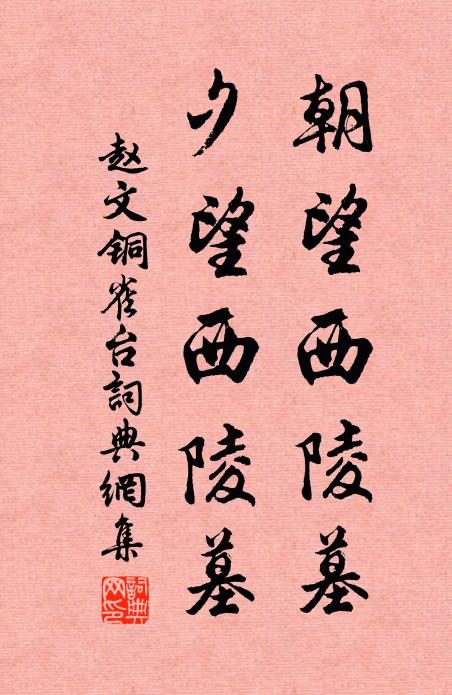 朝望西陵墓
夕望西陵墓
赵文铜雀台詞典網集
詞典网印